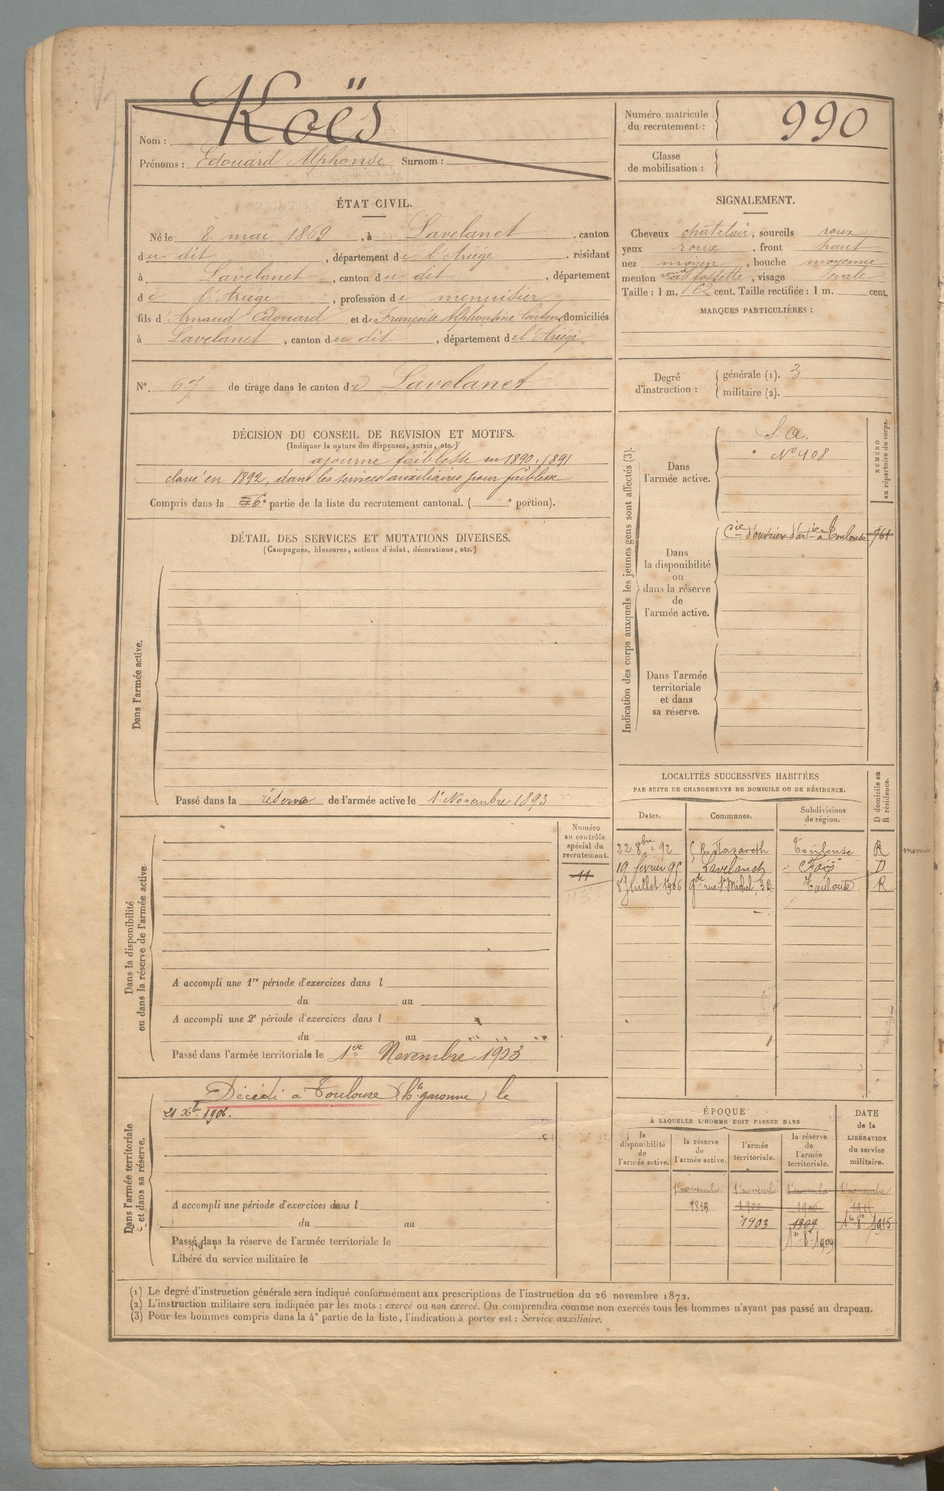 Koës
Nom :
Prénoms : Edouard Alphonse Surnom :
Numéro matricule
du recrutement :
990
Classe
de mobilisation :
ÉTAT CIVIL.
Né le 8 mai 1869, à Lavelanet, canton
du dit, département de l'Ariège, résidant
à Lavelanet, canton du dit, département
de l'Ariège, profession de menuisier
fils d'Arnaud Edouard et de Françoise Alphonsine domiciliés
à Lavelanet, canton du dit, département de l'Ariège
N°. 67 de tirage dans le canton de Lavelanet
SIGNALEMENT.
Cheveux chat clair, sourcils roux
yeux roux, front haut
nez moyen, bouche moyenne
menton rond fossette, visage ovale
Taille : 1 m. 62 cent. Taille rectifiée : 1 m. cent.
MARQUES PARTICULIÈRES :
Degré
d'instruction :
générale (1). 3
militaire (2).
DÉCISION DU CONSEIL DE REVISION ET MOTIFS.
(Indiquer la nature des dispenses, sursis, etc.)
ajourné faiblesse en 1890, 1891
classé en 1892, dans les services auxiliaires pour faiblesse
Compris dans la 6e partie de la liste du recrutement cantonal. ( e portion).
DÉTAIL DES SERVICES ET MUTATIONS DIVERSES.
(Campagnes, blessures, actions d'éclat, décorations, etc.)
Dans l'armée active.
Passé dans la réserve de l'armée active le 1er Novembre 1893
Indication des corps auxquels les jeunes gens sont affectés (3).
NUMÉRO
au répertoire du corps.
Dans
l'armée active.
S. A.
N° 408
Dans
la disponibilité
ou
dans la réserve
de
l'armée active.
Cie d'ouvriers d'artie à Toulouse 761
Dans l'armée
territoriale
et dans
sa réserve.
LOCALITÉS SUCCESSIVES HABITÉES
PAR SUITE DE CHANGEMENTS DE DOMICILE OU DE RÉSIDENCE.
Dates. Communes. Subdivisions
de région.
D domicile ou
R résidence.
22 8bre 92 R. Nazareth Toulouse R
19 février 95 Lavelanet Foix D
Juillet 1906 gde rue St Michel Toulouse R
Dans la disponibilité
ou dans la réserve de l'armée active.
Numéro
au contrôle
spécial du
recrutement.
11
A accompli une 1re période d'exercices dans l
du au
A accompli une 2e période d'exercices dans l
du au
Passé dans l'armée territoriale le 1er Novembre 1903
Dans l'armée territoriale
et dans sa réserve.
Décédé à Toulouse (hte garonne) le
21 Xbre 1906.
A accompli une période d'exercices dans l
du au
Passé dans la réserve de l'armée territoriale le
Libéré du service militaire le
ÉPOQUE
À LAQUELLE L'HOMME DOIT PASSER DANS
la
disponibilité
de
l'armée active.
la réserve
de
l'armée active.
l'armée
territoriale.
la réserve
de
l'armée
territoriale.
DATE
de la
LIBÉRATION
du service
militaire.
1er novembre 1er novembre 1er novembre 1er novembre
1893 1900 1909
1903 1909 1915
1909
(1) Le degré d'instruction générale sera indiqué conformément aux prescriptions de l'instruction du 26 novembre 1872.
(2) L'instruction militaire sera indiquée par les mots : exercé ou non exercé. On comprendra comme non exercés tous les hommes n'ayant pas passé au drapeau.
(3) Pour les hommes compris dans la 4e partie de la liste, l'indication à porter est : Service auxiliaire.